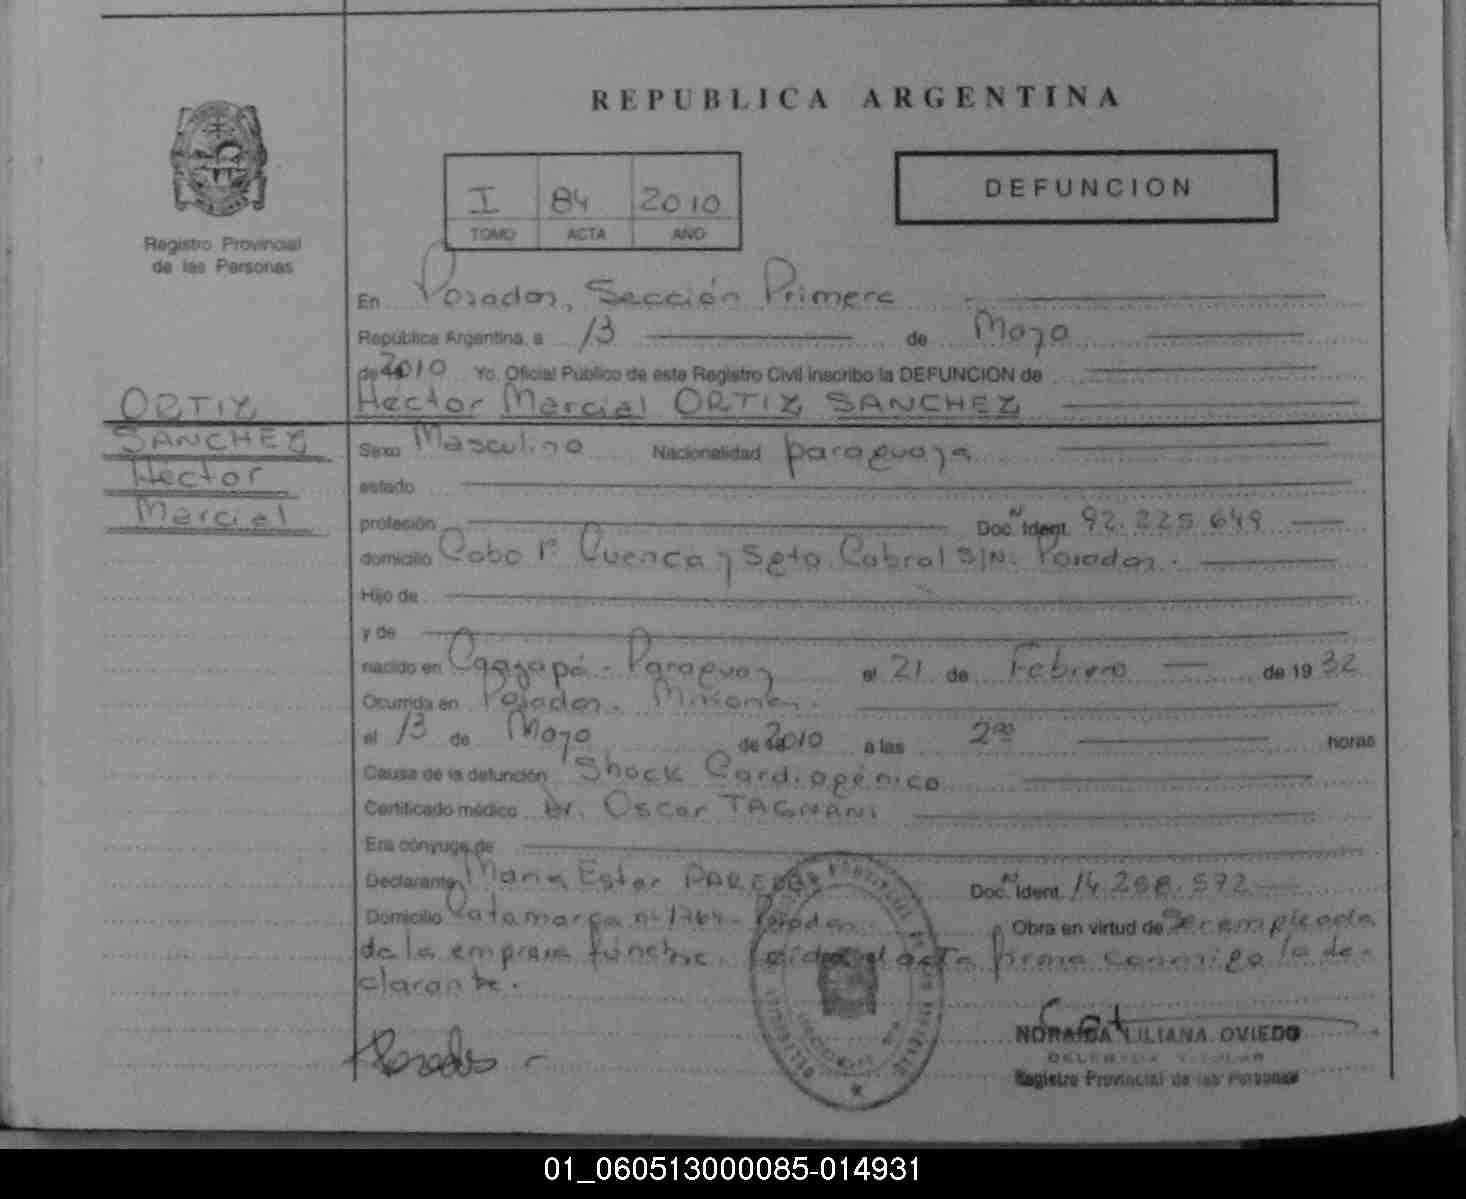 REPUBLICA ARGENTINA
I 84 2010
TOMO ACTA AÑO
DEFUNCION
Registro Provincial
de las Personas
En Posadas, Sección Primera
República Argentina, a 13 de Mayo
de 2010 Yo, Oficial Público de este Registro Civil inscribo la DEFUNCION de
Hector Marcial ORTIZ SANCHEZ
ORTIZ
SANCHEZ
Hector
Marcial
Sexo Masculino Nacionalidad paraguaya
estado
profesión Doc. N Ident. 92.225.649
domicilio Cabo 1º Cuenca y Sgto. Cabral S/N. Posadas.
Hijo de
y de
nacido en Caazapá - Paraguay el 21 de Febrero de 19 32
Ocurrida en Posadas. Misiones.
el 13 de Mayo de 2010 a las 2 00 horas
Causa de la defunción Shock Cardiogénico
Certificado médico Dr. Oscar TAGNANI
Era cónyuge de
Declarante Maria Ester PAREDES Doc. N Ident. 14.258.572
Domicilio Catamarca nº 1764 - Posadas Obra en virtud de Ser empleada
de la empresa fúnebre. Leída el acta firma conmigo la de-
clarante.
NORAIDA LILIANA OVIEDO
DELEGADA TITULAR
Registro Provincial de las Personas
01_060513000085-014931